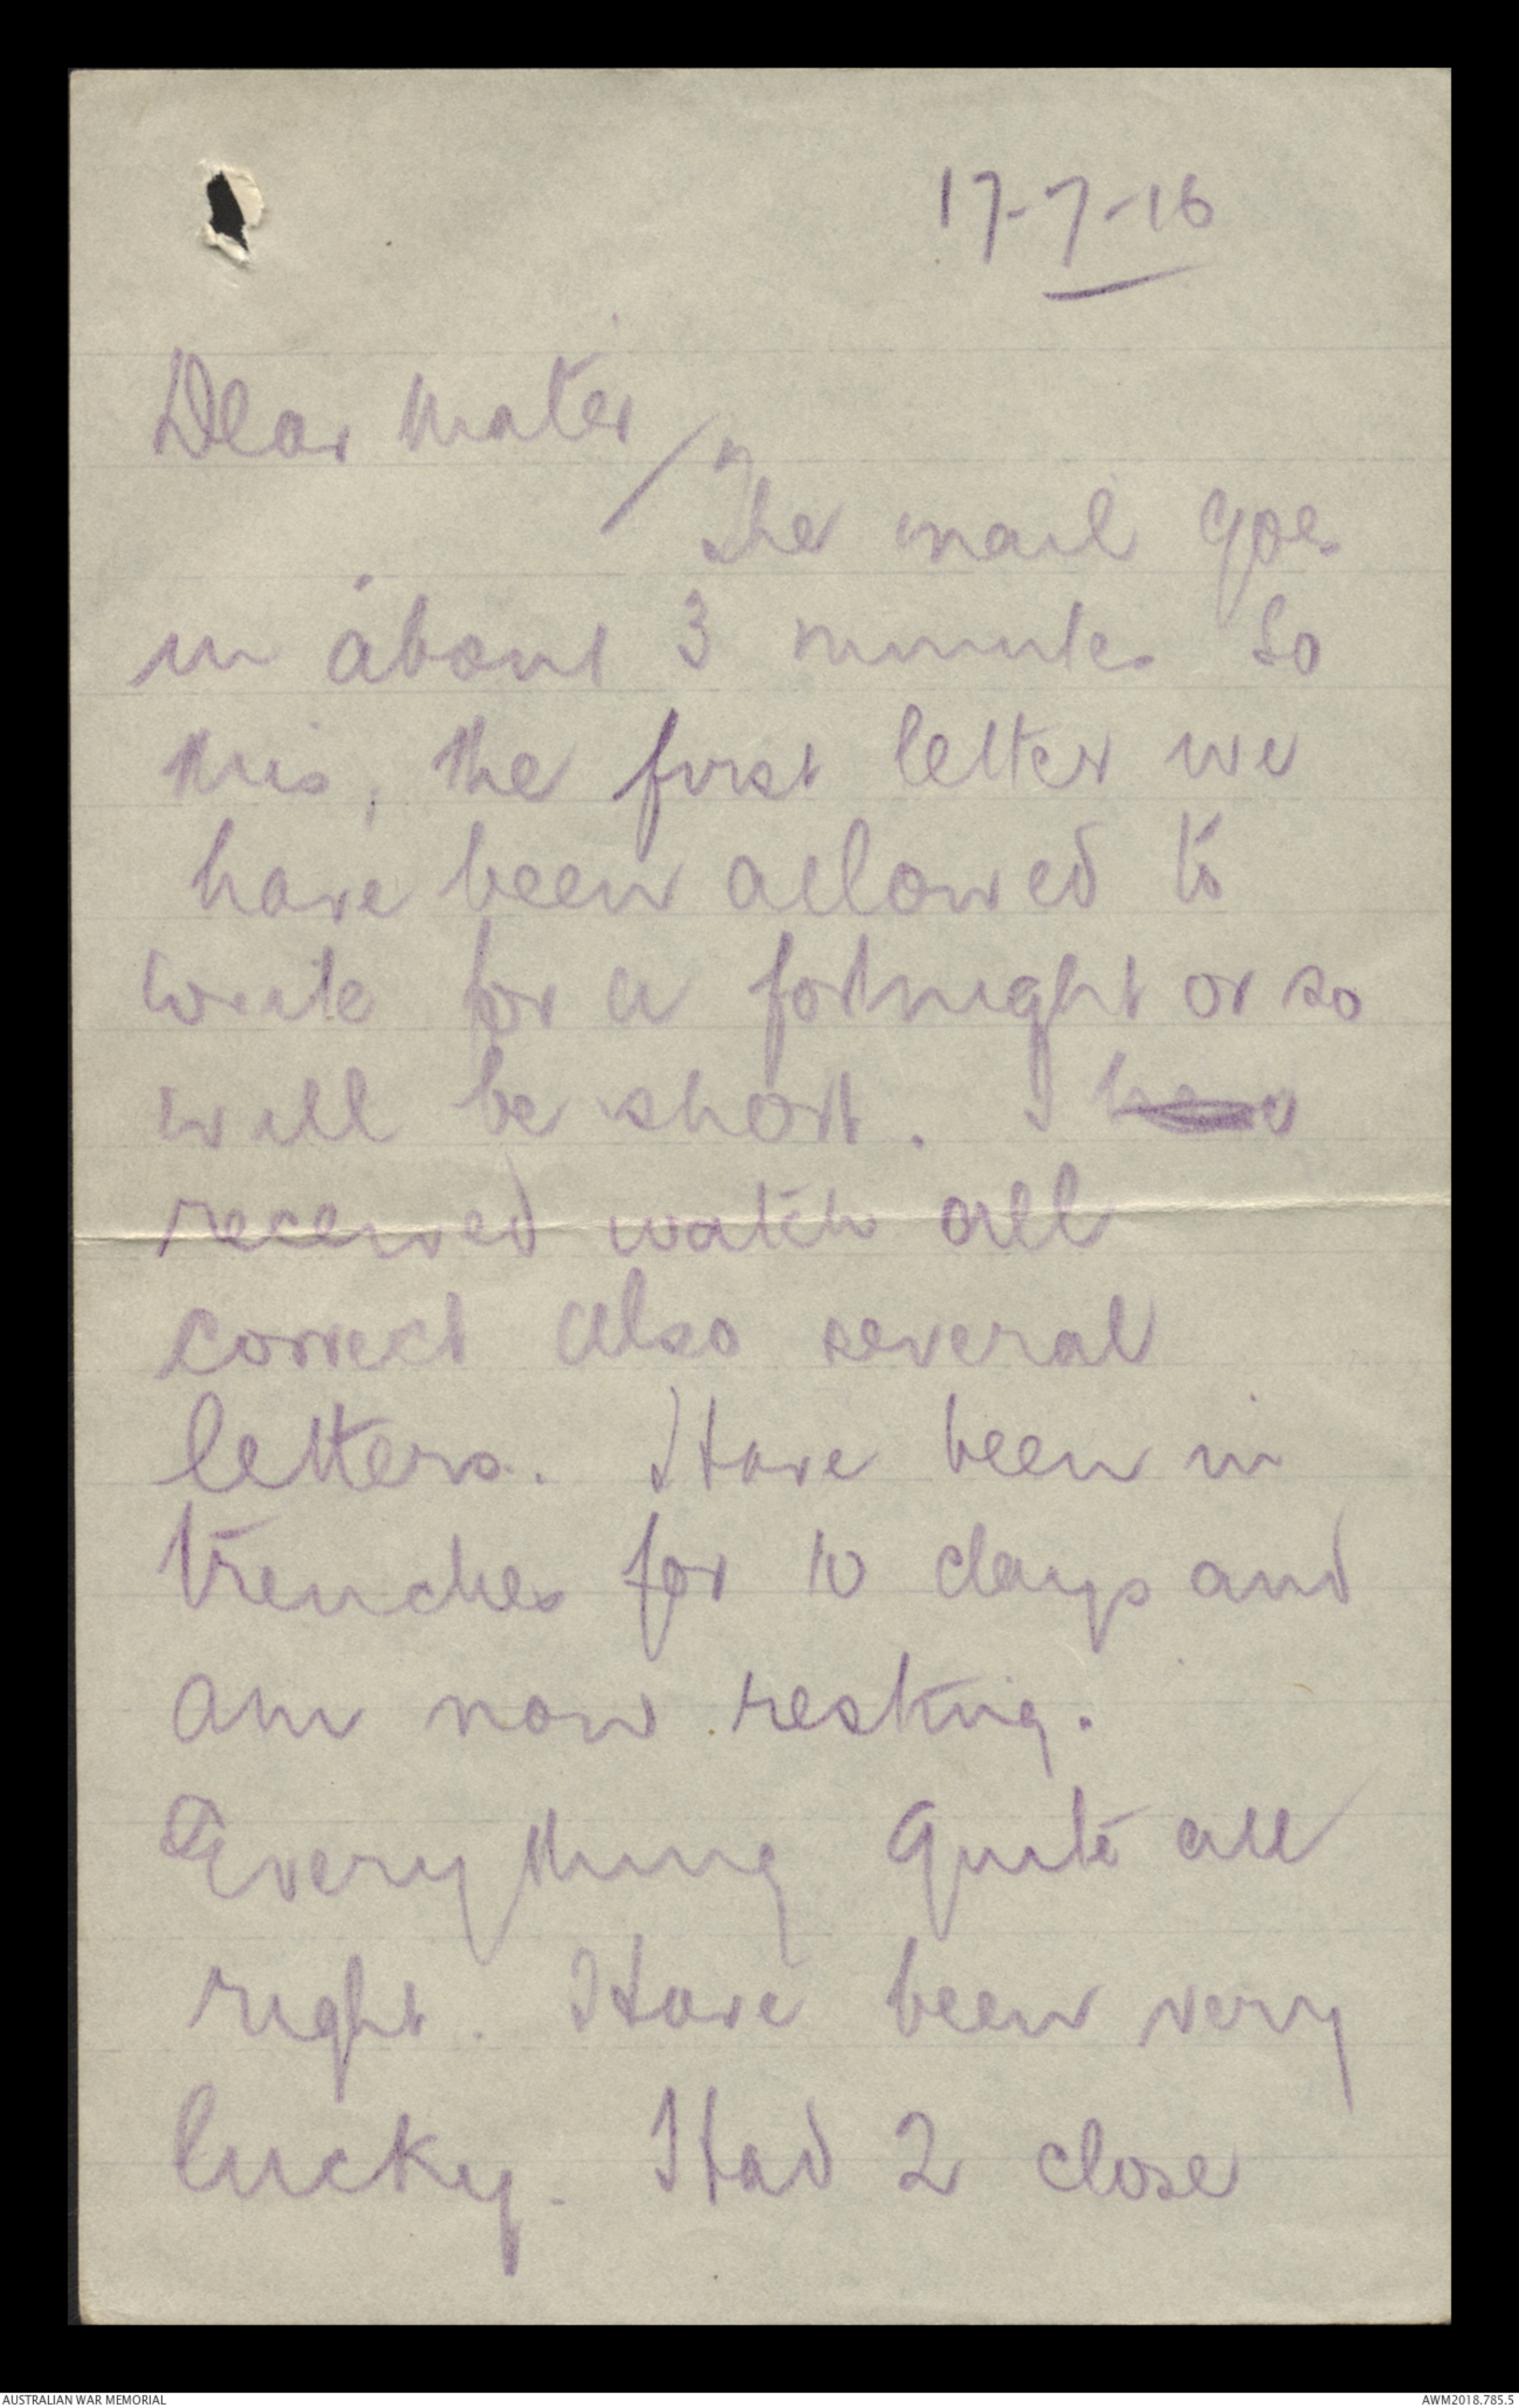 17-7-16
Dear Mater/
The mail goes
in about 3 minutes So
this, the first letter we
have been allowed to
write for a fortnight or so
will be short. I
received watch all
correct also several
letters. Have been in
trenches for 10 days and
am now resting.
Everything quite all
right. Have been very
lucky. Had 2 close
AUSTRALIAN WAR MEMORIAL
AWM2018.785.5